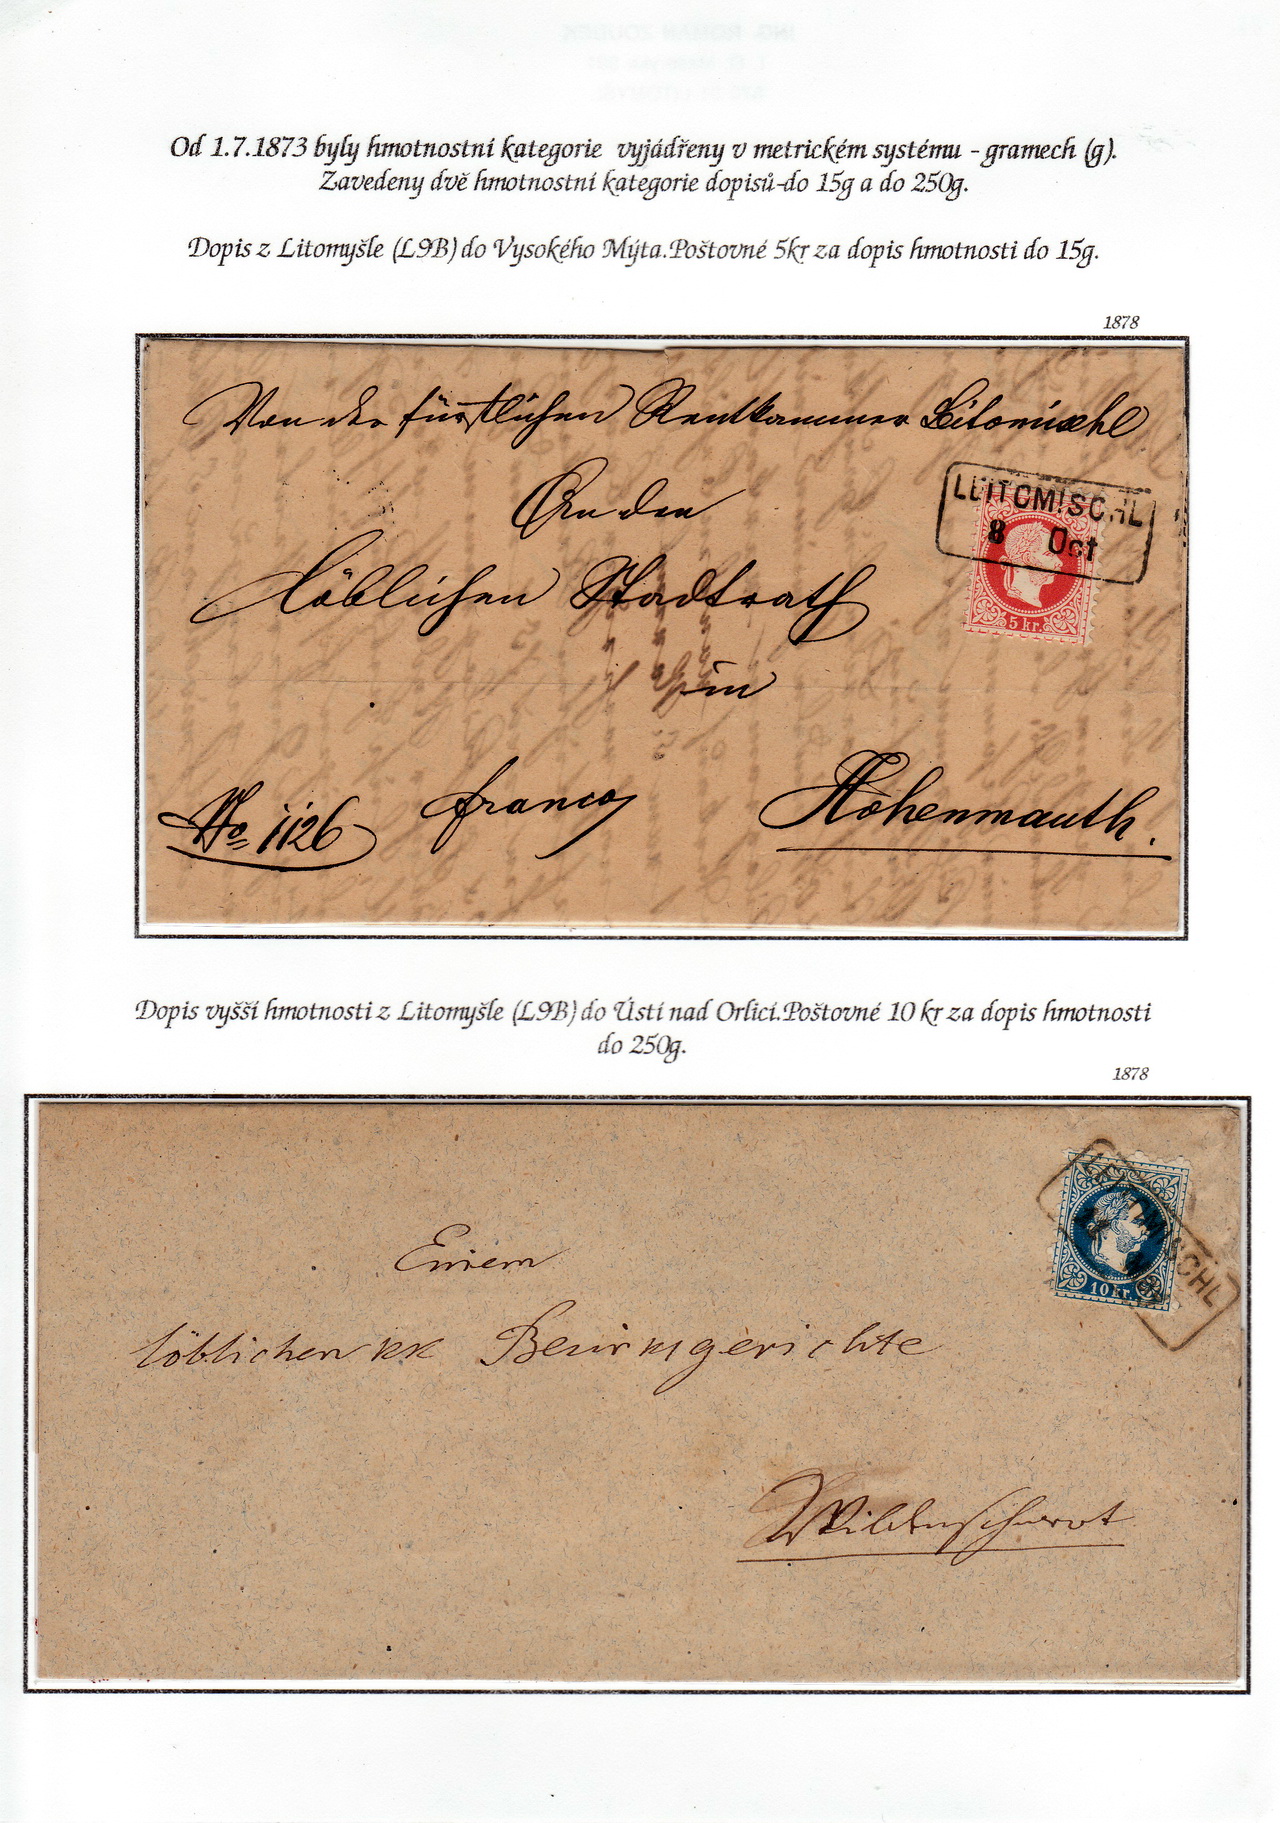 Od 1.7.1873 byly hmotnostní kategorie vyjádřeny v metrickém systému - gramech (g).
Zavedeny dvě hmotnostní kategorie dopisů-do 15g a do 250g.
Dopis z Litomyšle (L9B) do Vysokého Mýta.Poštovné 5kr za dopis hmotnosti do 15g.
1878
Von der fürstlichen Rentkammer Leitomischl
An den
LEITOMISCHL
8 Oct
löblichen Stadtrath
5 kr.
in
No 1126 franco Hohenmauth.
Dopis vyšší hmotnosti z Litomyšle (L9B) do Ústí nad Orlicí.Poštovné 10 kr za dopis hmotnosti
do 250g.
1878
LEITOMISCHL
10 kr.
Einem
löblichen kk Bezirksgerichte
Wildenschwert